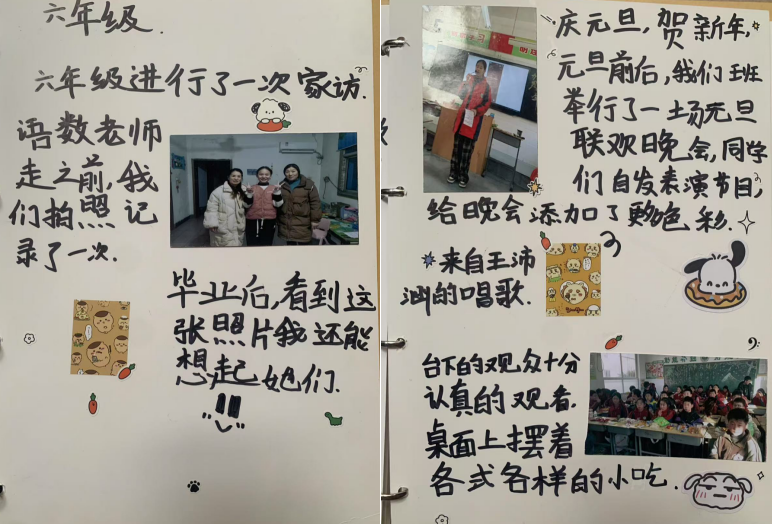 六年级.
六年级进行了一次家访.
语数老师
走之前,我
们拍照记
录了一次.
毕业后,看到这
张照片我还能
想起她们.
庆元旦,贺新年,
元旦前后,我们班
举行了一场元旦
联欢晚会,同学
们自发表演节目,
给晚会添加了色彩.
来自王沛
的唱歌.
台下的观众十分
认真的观看.
桌面上摆着
各式各样的小吃.